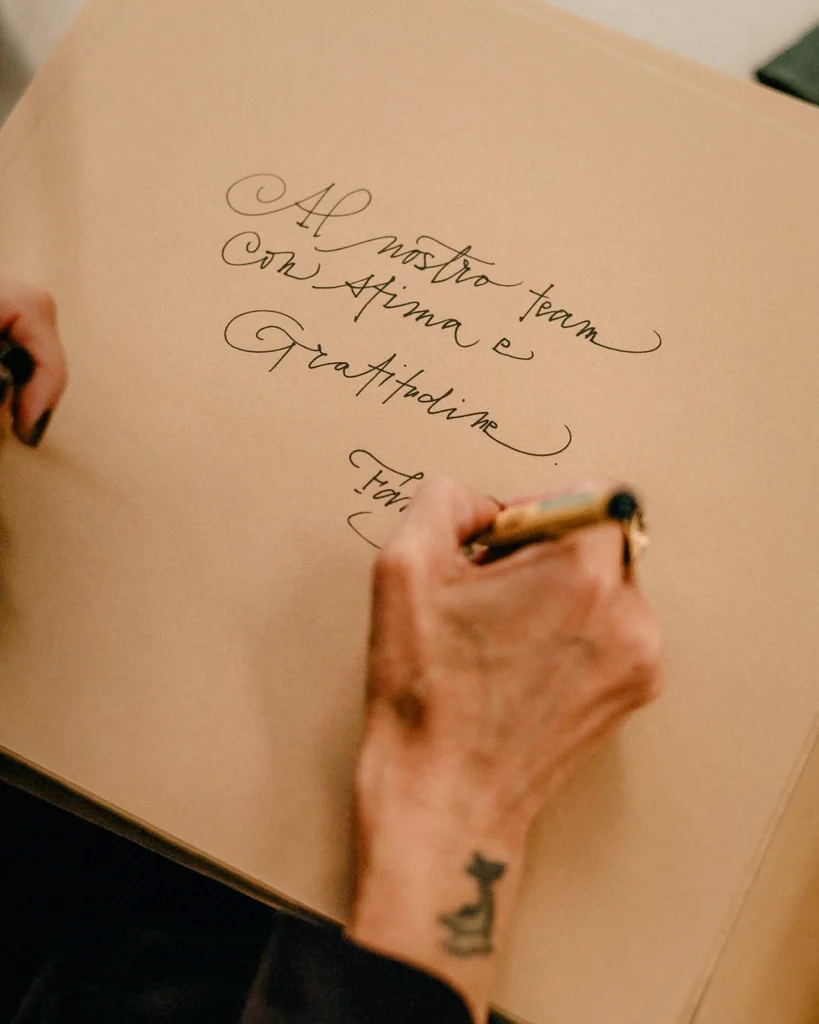 Al nostro team
Con stima e
Gratitudine